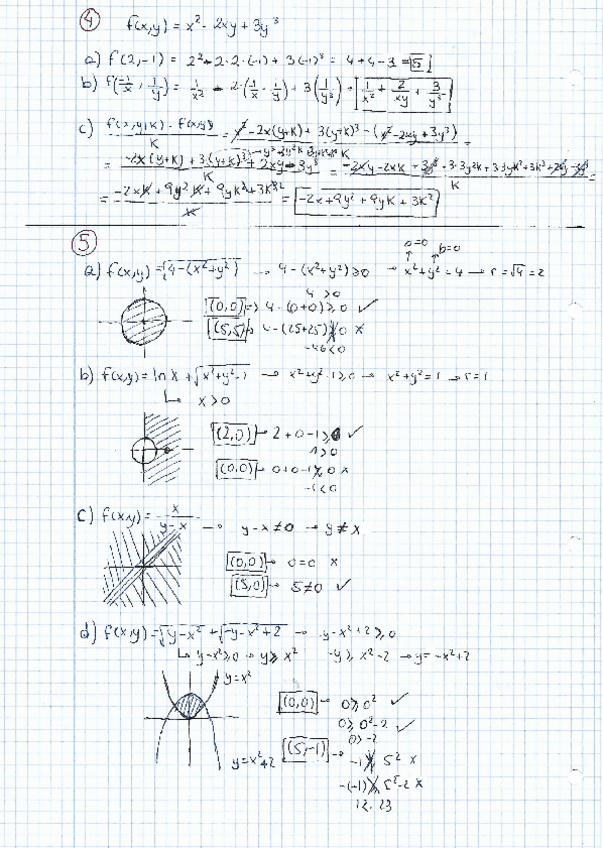 ④ f(x,y) = x² - 2xy + 3y³
a) f(2,-1) = 2² - 2·2·(-1) + 3(-1)³ = 4 + 4 - 3 = 5
b) f(-1/x, 1/y) = 1/x² - 2·(1/x · 1/y) + 3(1/y³) = 1/x² + 2/xy + 3/y³
c) (f(x,y+k) - f(x,y))/k = (x² - 2x(y+k) + 3(y+k)³ - (x² - 2xy + 3y³))/k =
= (-2x(y+k) + 3(y+k)³ + 2xy - 3y³)/k = (-2xy - 2xk + 3y³ + 3·3y²k + 3·3yk² + 3k³ + 2xy - 3y³)/k =
= (-2xk + 9y²k + 9yk² + 3k³)/k = -2x + 9y² + 9yk + 3k²
⑤
a=0 b=0
a) f(x,y) = √4-(x²+y²) → 4-(x²+y²) ≥ 0 → x²+y² = 4 → r = √4 = 2
4 > 0
(0,0) → 4-(0+0) ≥ 0 ✓
(5,5) → 4-(25+25) ≱ 0 x
-46 < 0
b) f(x,y) = ln x + √x²+y²-1 → x²+y²-1 ≥ 0 → x²+y² = 1 → r = 1
↳ x > 0
(2,0) → 2+0-1 ≥ 0 ✓
1 > 0
(0,0) → 0+0-1 ≱ 0 x
-1 < 0
c) f(x,y) = x/(y-x) → y-x ≠ 0 → y ≠ x
(0,0) → 0=0 x
(5,0) → 5≠0 ✓
d) f(x,y) = √y-x² + √-y-x²+2 → -y-x²+2 ≥ 0
↳ y-x² ≥ 0 → y ≥ x² -y ≥ x²-2 → y = -x²+2
y = x²
(0,0) → 0 ≥ 0² ✓
0 ≥ 0²-2 ✓
0 > -2
y = x²+2 (5,-1) → -1 ≱ 5² x
-(-1) ≱ 5²-2 x